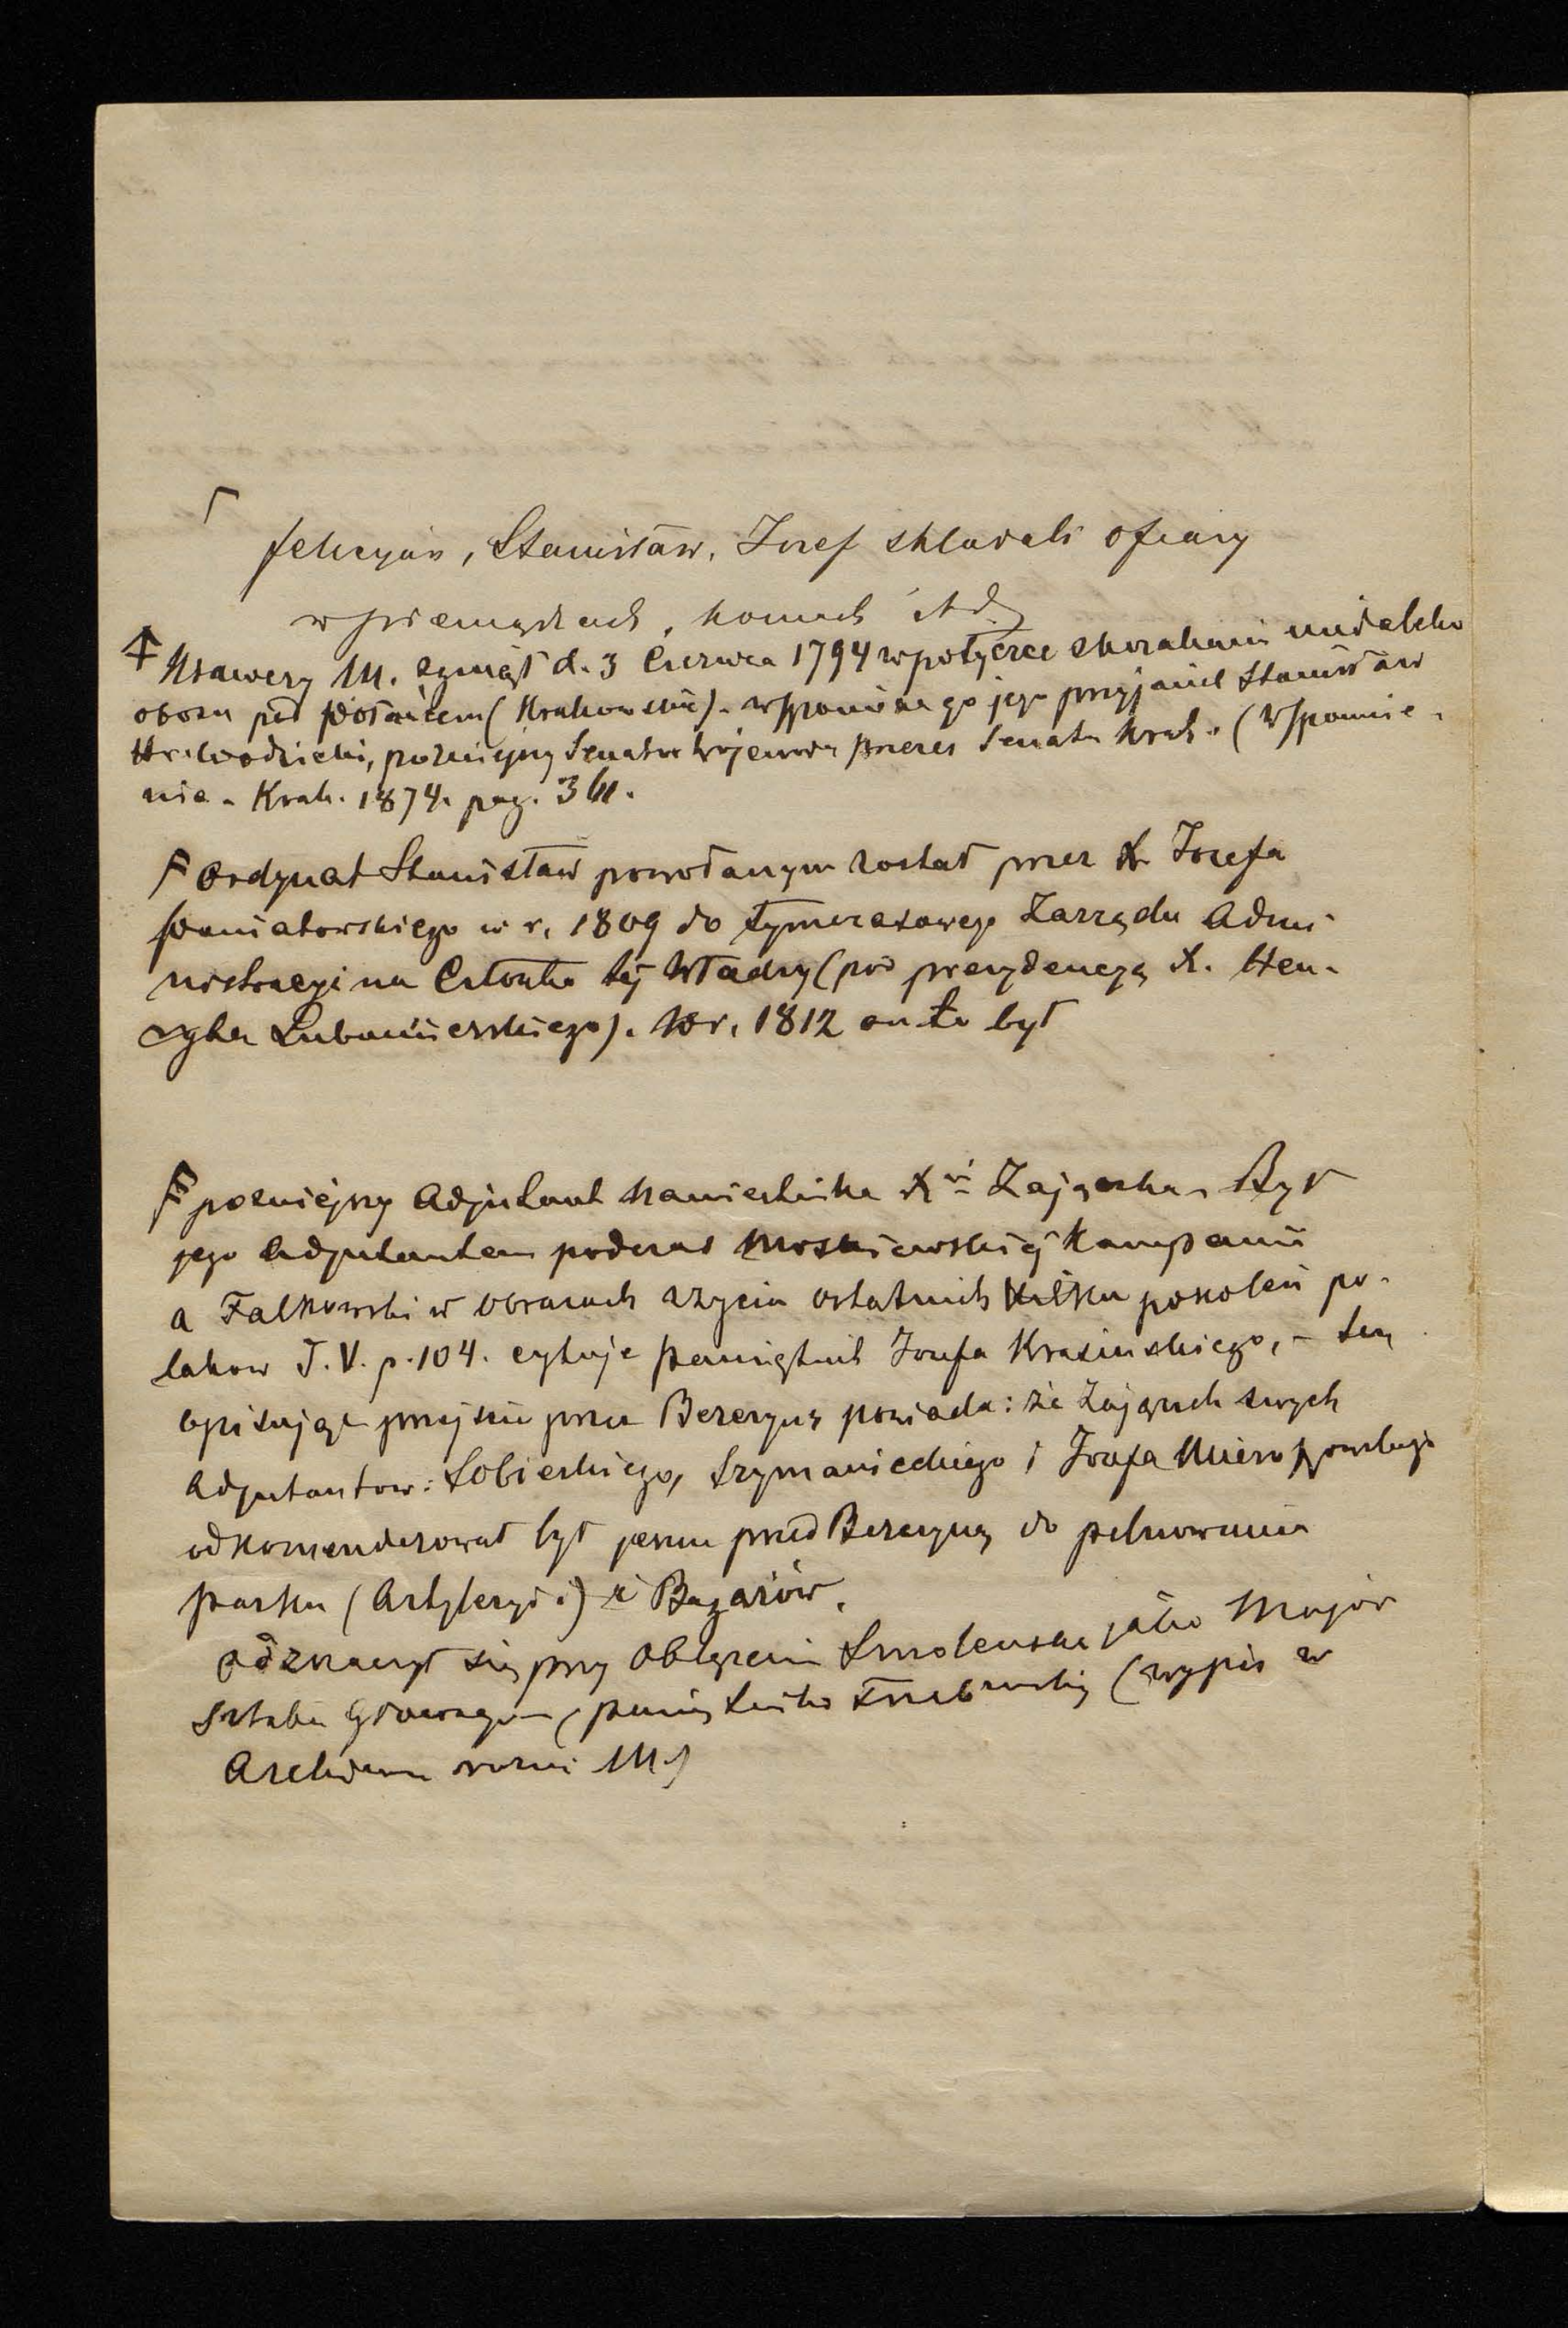 Felicyan, Stanisław, Józef składali ofiary
w pieniądzach, koniach itd
Ksawery M. zginął d. 3 Czerwca 1794 w potyczce z Kozakami niedaleko
obozu pod Połańcem (Krakowskie). Wspomina go jego przyjaciel Stanisław
Hr. Wodzicki, pozniejszy Senator Wojewoda prezes Senatu Krak. (Wspomnie-
nia. Krak. 1874. pag. 361.
Ordynat Stanisław powołanym został przez X. Jozefa
Poniatowskiego w r. 1809 do tymczasowego Zarządu Admi
nistracyi na Członka tej Władzy (pod prezydencyą X. Hen-
ryka Lubomierskiego). W r. 1812 on to był
pozniejszy Adjutant Namiestnika Xcia Zajączka. Był
jego Adjutantem podczas Moskiewskiej Kampanii
a Falkowski w Obrazach z życia ostatnich kilku pokoleń po-
lakow T. V. p. 104. cytuje pamiętnik Jozefa Krasinskiego, – ten
opisując przejscie przez Berezynę powiada: że Zajączek swych
Adjutantow: Sobieskiego, Szymanieckiego i Jozefa Mieroszowskiego
odkomenderował był jeszcze przed Berezyną do pilnowania
parku (Artyleryi) i Bagażów.
odznaczył się przy oblężeniu Smolenska jako Major
Sztabu Głownego (pamiętnik (wypis w
Archiwum rodzi M.)